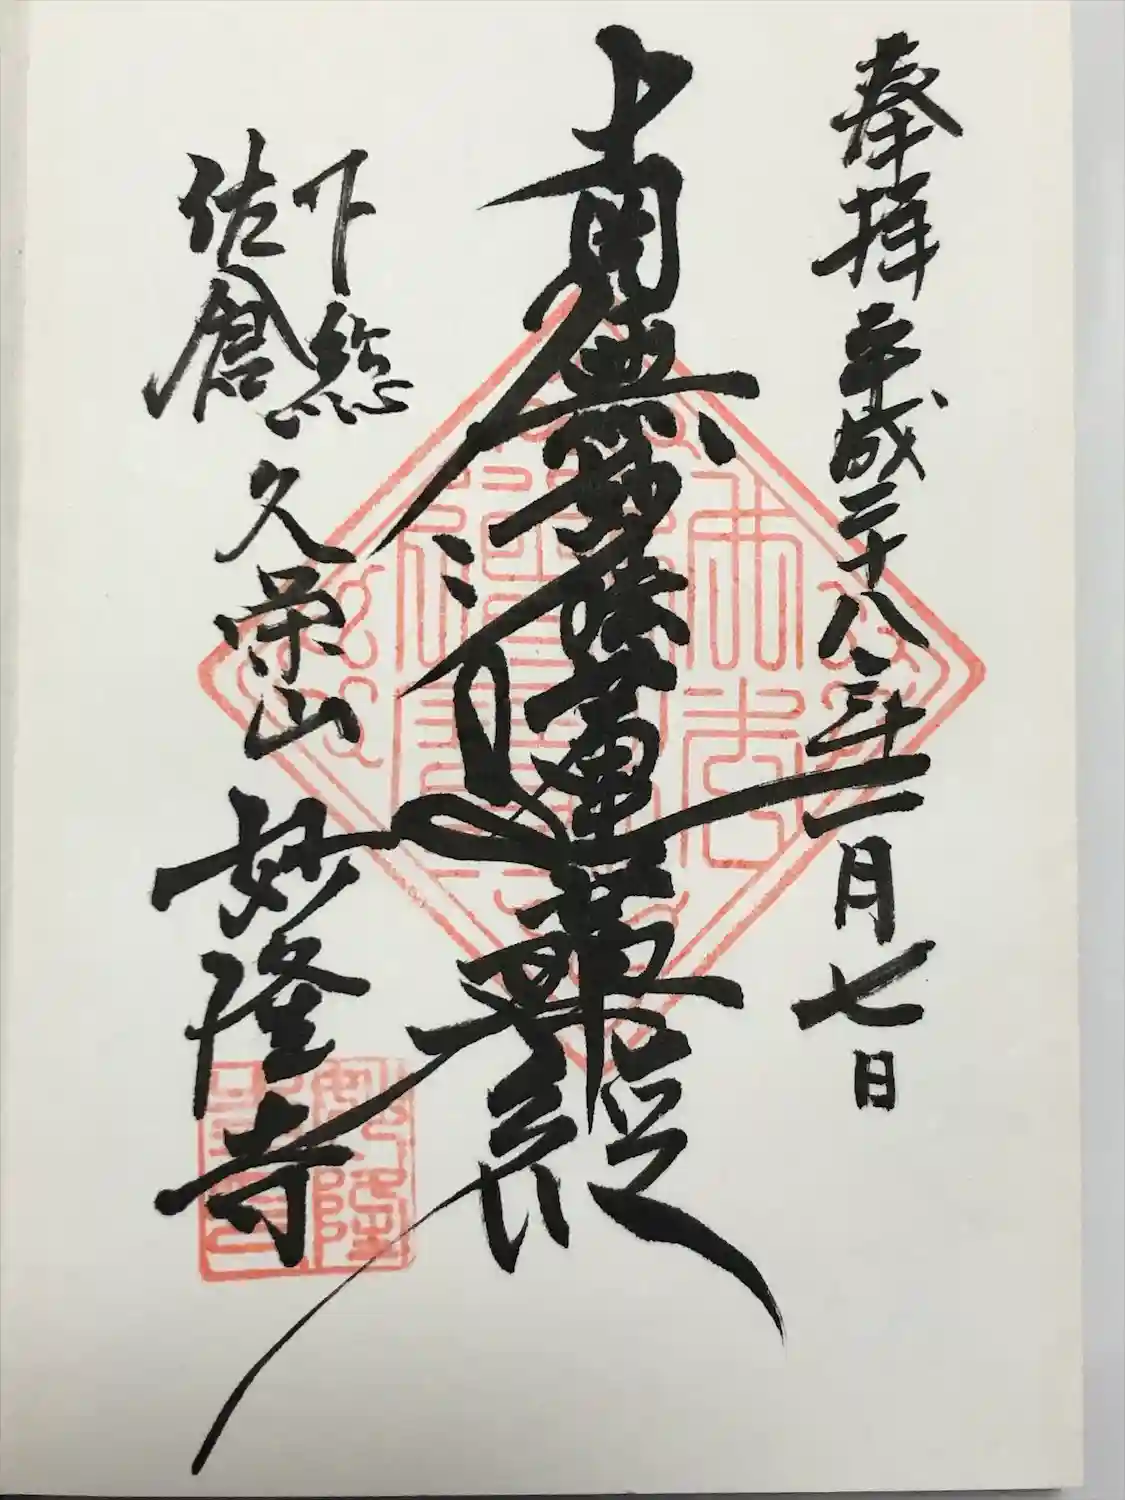 奉拝 平成二十八年一月七日
南無妙法蓮華経
下総
佐倉
久栄山
妙隆寺